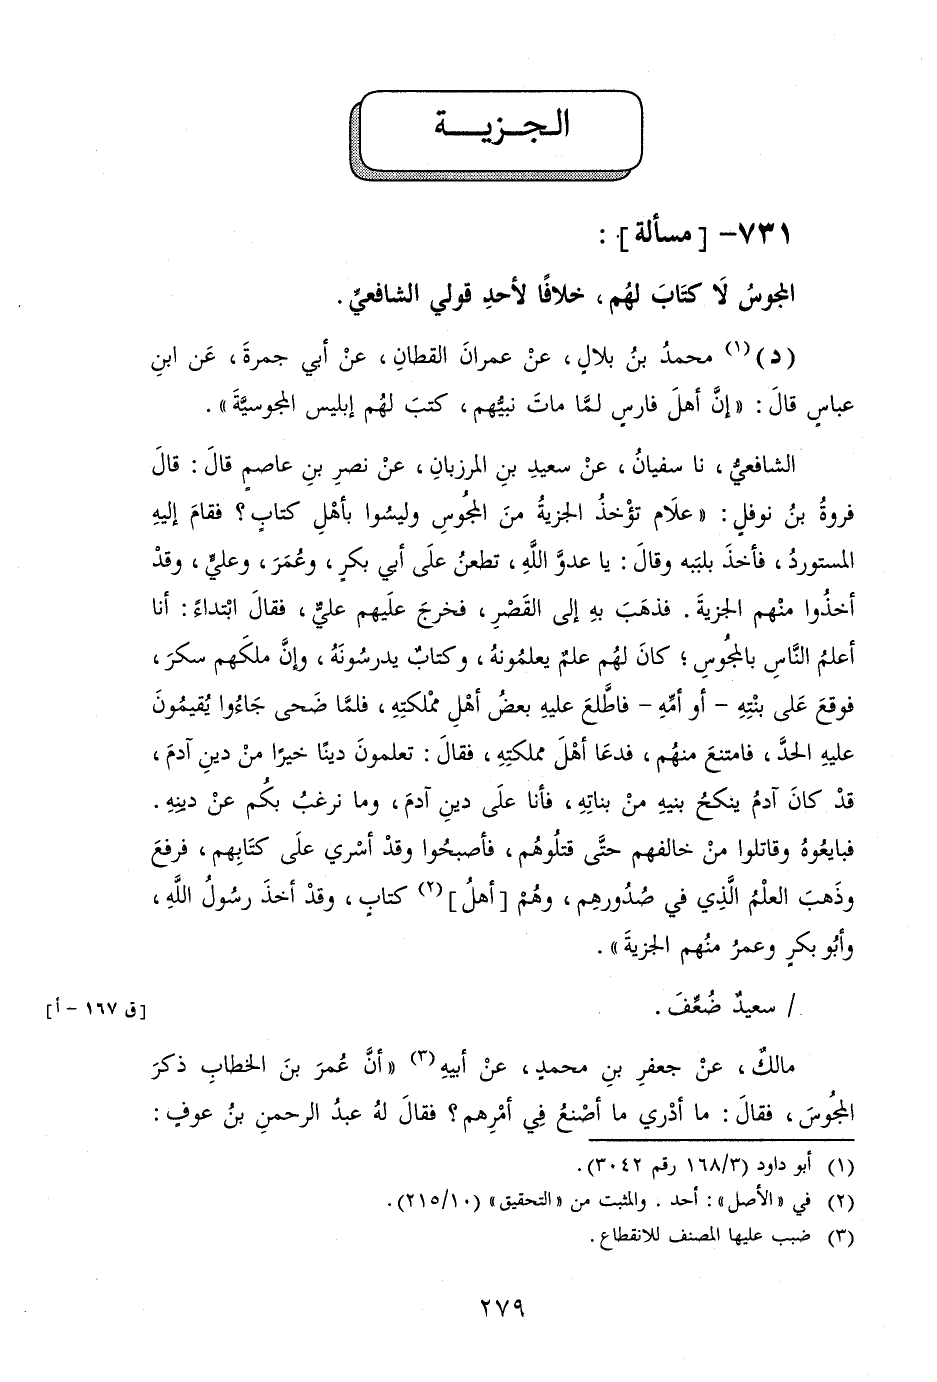 الجزية
٧٣١- [ مسألة ] :
المجوسُ لَا كتَابَ لهُم ، خلافًا لأحدِ قولي الشافعيِّ .
(د)(١) محمدُ بنُ بلالٍ ، عنْ عمرانَ القطانِ ، عنْ أبي جمرةَ ، عَن ابنِ
عباسٍ قالَ : « إنَّ أهلَ فارسٍ لمَّا ماتَ نبيُّهم ، كتبَ لهُم إبليس المجوسيَّةَ » .
الشافعيُّ ، نا سفيانُ ، عنْ سعيدِ بنِ المرزبانِ ، عنْ نصرِ بنِ عاصمٍ قالَ : قالَ
فروةُ بنُ نوفلٍ : « علَام تؤْخذُ الجزيةُ منَ المجُوسِ وليسُوا بأهْلِ كتابٍ ؟ فقامَ إليهِ
المستوردُ ، فأخذَ بلببه وقالَ : يا عدوَّ اللَّهِ ، تطعنُ علَى أبي بكرٍ ، وعُمَرَ ، وعليٍّ ، وقدْ
أخذُوا منْهم الجزيةَ . فذهَبَ بهِ إلى القَصْرِ ، فخرجَ علَيهم عليٌّ ، فقالَ ابْتداءً : أنا
أعلمُ النَّاسِ بالمجُوسِ ؛ كانَ لهُم علمٌ يعلمُونهُ ، وكتابٌ يدرسُونَهُ ، وإنَّ ملكَهم سكرَ ،
فوقعَ عَلى بنْتِهِ - أو أمِّهِ - فاطَّلعَ عليهِ بعضُ أهْلِ ممْلكتِهِ ، فلمَّا ضَحى جَاءُوا يُقيمُونَ
عليهِ الحدَّ ، فامتنعَ منهُم ، فدعَا أهْلَ مملكتِهِ ، فقالَ : تعلمونَ دينًا خيرًا منْ دينِ آدمَ ،
قدْ كانَ آدمُ ينكحُ بنيهِ منْ بناتِهِ ، فأنا علَى دينِ آدمَ ، وما نرغبُ بكُم عنْ دينِهِ .
فبايعُوهُ وقاتلوا منْ خالفهم حتَّى قتلُوهُم ، فأصبحُوا وقدْ أسْري علَى كتَابِهم ، فرفعَ
وذَهبَ العلْمُ الَّذِي في صُدُورِهِم ، وهُمْ [ أهلُ ](٢) كتابٍ ، وقدْ أخذَ رسُولُ اللَّهِ ،
وأبُو بكرٍ وعمرُ منْهُم الجزيةَ » .
/ سعيدٌ ضُعِّفَ .
[ق ١٦٧ - أ]
مالكٌ ، عنْ جعفرِ بنِ محمدٍ ، عنْ أبيهِ(٣) « أنَّ عُمرَ بنَ الخطابِ ذكرَ
المجُوسَ ، فقالَ : ما أدْري ما أصْنعُ فِي أمْرِهم ؟ فقالَ لهُ عبدُ الرحمنِ بنُ عوفٍ :
(١) أبو داود (١٦٨/٣ رقم ٣٠٤٢).
(٢) في « الأصل » : أحد . والمثبت من « التحقيق » (٢١٥/١٠).
(٣) ضبب عليها المصنف للانقطاع .
٢٧٩